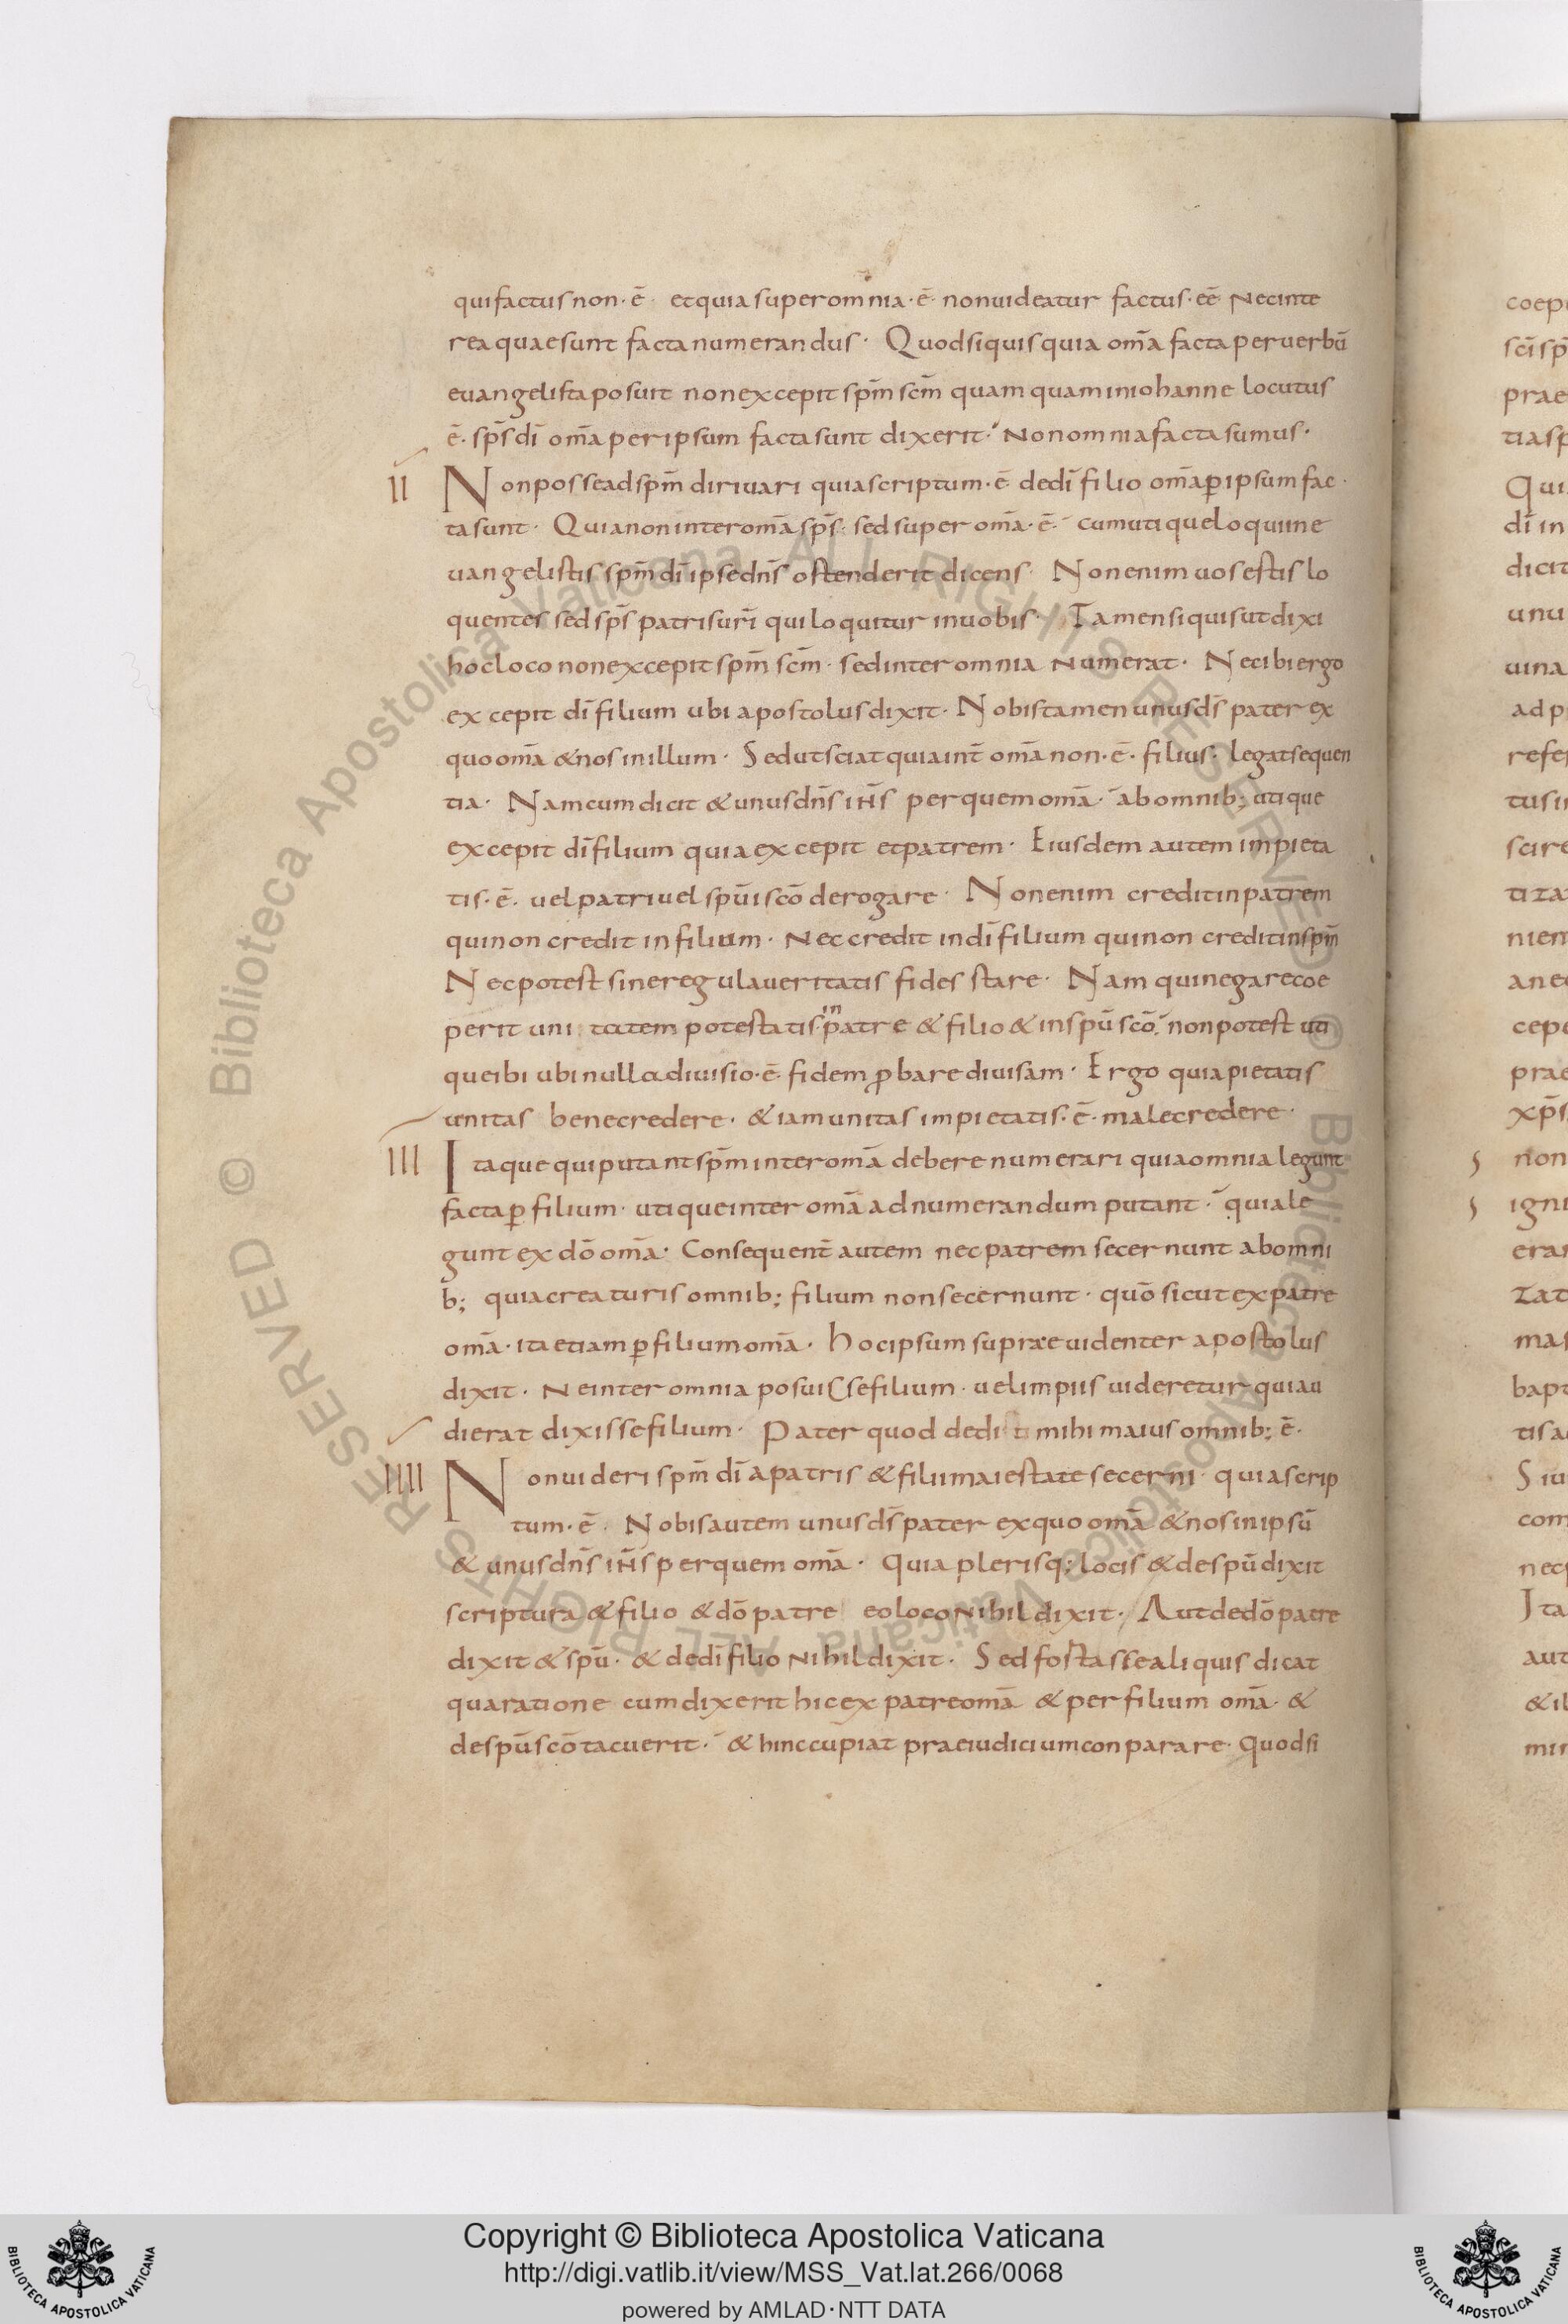 qui factus non · ē · et quia super omnia · ē · non uideatur factus · eē Nec inte
rea quae sunt facta numerandus · Quod si quis quia om̄a facta per uerbū
euangelista posuit non excepit sp̄m sc̄m quam quam in iohanne locutus
ē · sp̄s dī om̄a per ipsum facta sunt dixerit · Non omnia facta sumus ·
II Non posse ad sp̄m diriuari quia scriptum · ē de dī filio om̄a ꝑ ipsum fac ·
ta sunt · Quia non inter om̄a sp̄s · sed super om̄a · ē · cum utique loqui in e
uangelistis sp̄m dī ipse dn̄s ostenderit dicens · Non enim uos estis lo
quentes sed sp̄s patris uri̅ qui loquitur in uobis · Tamen si quis ut dixi
hoc loco non excepit sp̄m sc̄m · sed inter omnia numerat · Nec ibi ergo
excepit dī filium ubi apostolus dixit · Nobis tamen unus d̄s pater ex
quo om̄a & nos in illum · Sed ut sciat quia int̄ om̄a non · ē · filius · legat sequen
tia · Nam cum dicit & unus dn̄s ih̄s per quem om̄a · ab omnib; utique
excepit dī filium quia excepit et patrem · Eiusdem autem impieta
tis · ē · uel patri uel spūi scō derogare · Non enim credit in patrem
qui non credit in filium · Nec credit in dī filium qui non credit in sp̄m
Nec potest sine regula ueritatis fides stare · Nam qui negare coe
perit uni tatem potestatis in patre & filio & in spū scō · non potest uti
que ibi ubi nulla diuisio · ē · fidem ꝓbare diuisam · Ergo quia pietatis
unitas bene credere · & iam unitas impietatis · ē · male credere ·
III Itaque qui putant sp̄m inter om̄a debere numerari quia omnia legunt
facta ꝑ filium · utique inter om̄a adnumerandum putant · quia le
gunt ex dō om̄a · Consequent̄ autem nec patrem secernunt ab omni
b; quia creaturis omnib; filium non secernunt · quō sicut ex patre
om̄a · ita etiam ꝑ filium om̄a · hoc ipsum supra euidenter apostolus
dixit · Ne inter omnia posuisse filium · uel impiis uideretur quia u
dierat dixisse filium · Pater quod dedit mihi maius omnib; ē ·
IIII Non uideri sp̄m dī a patris & filii maiestate secerni · quia scrip
tum · ē · Nobis autem unus d̄s pater ex quo om̄a & nos in ipsū
& unus dn̄s ih̄s per quem om̄a · Quia plerisq; locis & de spū dixit
scriptura & filio & dō patre eo loco nihil dixit · Aut de dō patre
dixit & spū · & de dī filio nihil dixit · Sed fostasse aliquis dicat
qua ratione cum dixerit hic ex patre om̄a & per filium om̄a · &
de spū scō tacuerit · & hinc cupiat praeiudicium conparare · Quod si
coep
scī sp̄
prae
tias p
Qui
dī in
dicit
unu
uina
ad p
refe
tus i
scire
tiza
niem
an e
cepe
prae
xp̄s
non
igni
era
zat
mas
bapt
tis a
S iu
com
nec
Ita
aut
& il
min
Copyright © Biblioteca Apostolica Vaticana
http://digi.vatlib.it/view/MSS_Vat.lat.266/0068
powered by AMLAD·NTT DATA